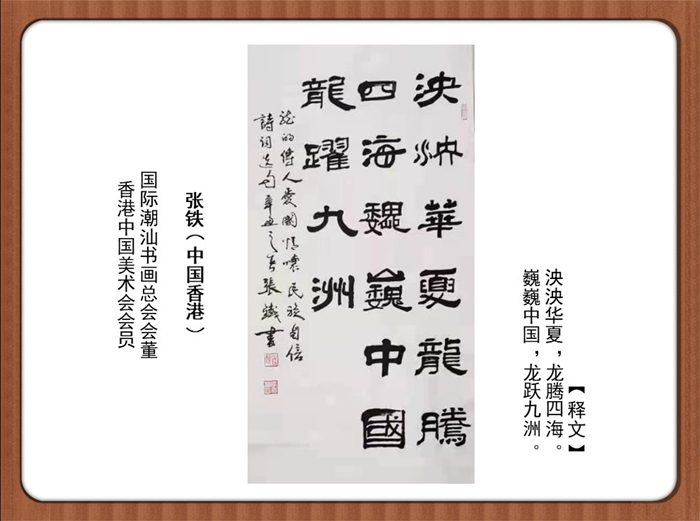 【释文】
泱泱华夏，龙腾四海。
巍巍中国，龙跃九洲。
泱泱華夏龍騰
四海魏巍中國
龍躍九洲
龍的傳人愛國情懷民族自信
詩詞句辛丑之張鐵書
张铁（中国香港）
国际潮汕书画总会会董
香港中国美术会会员